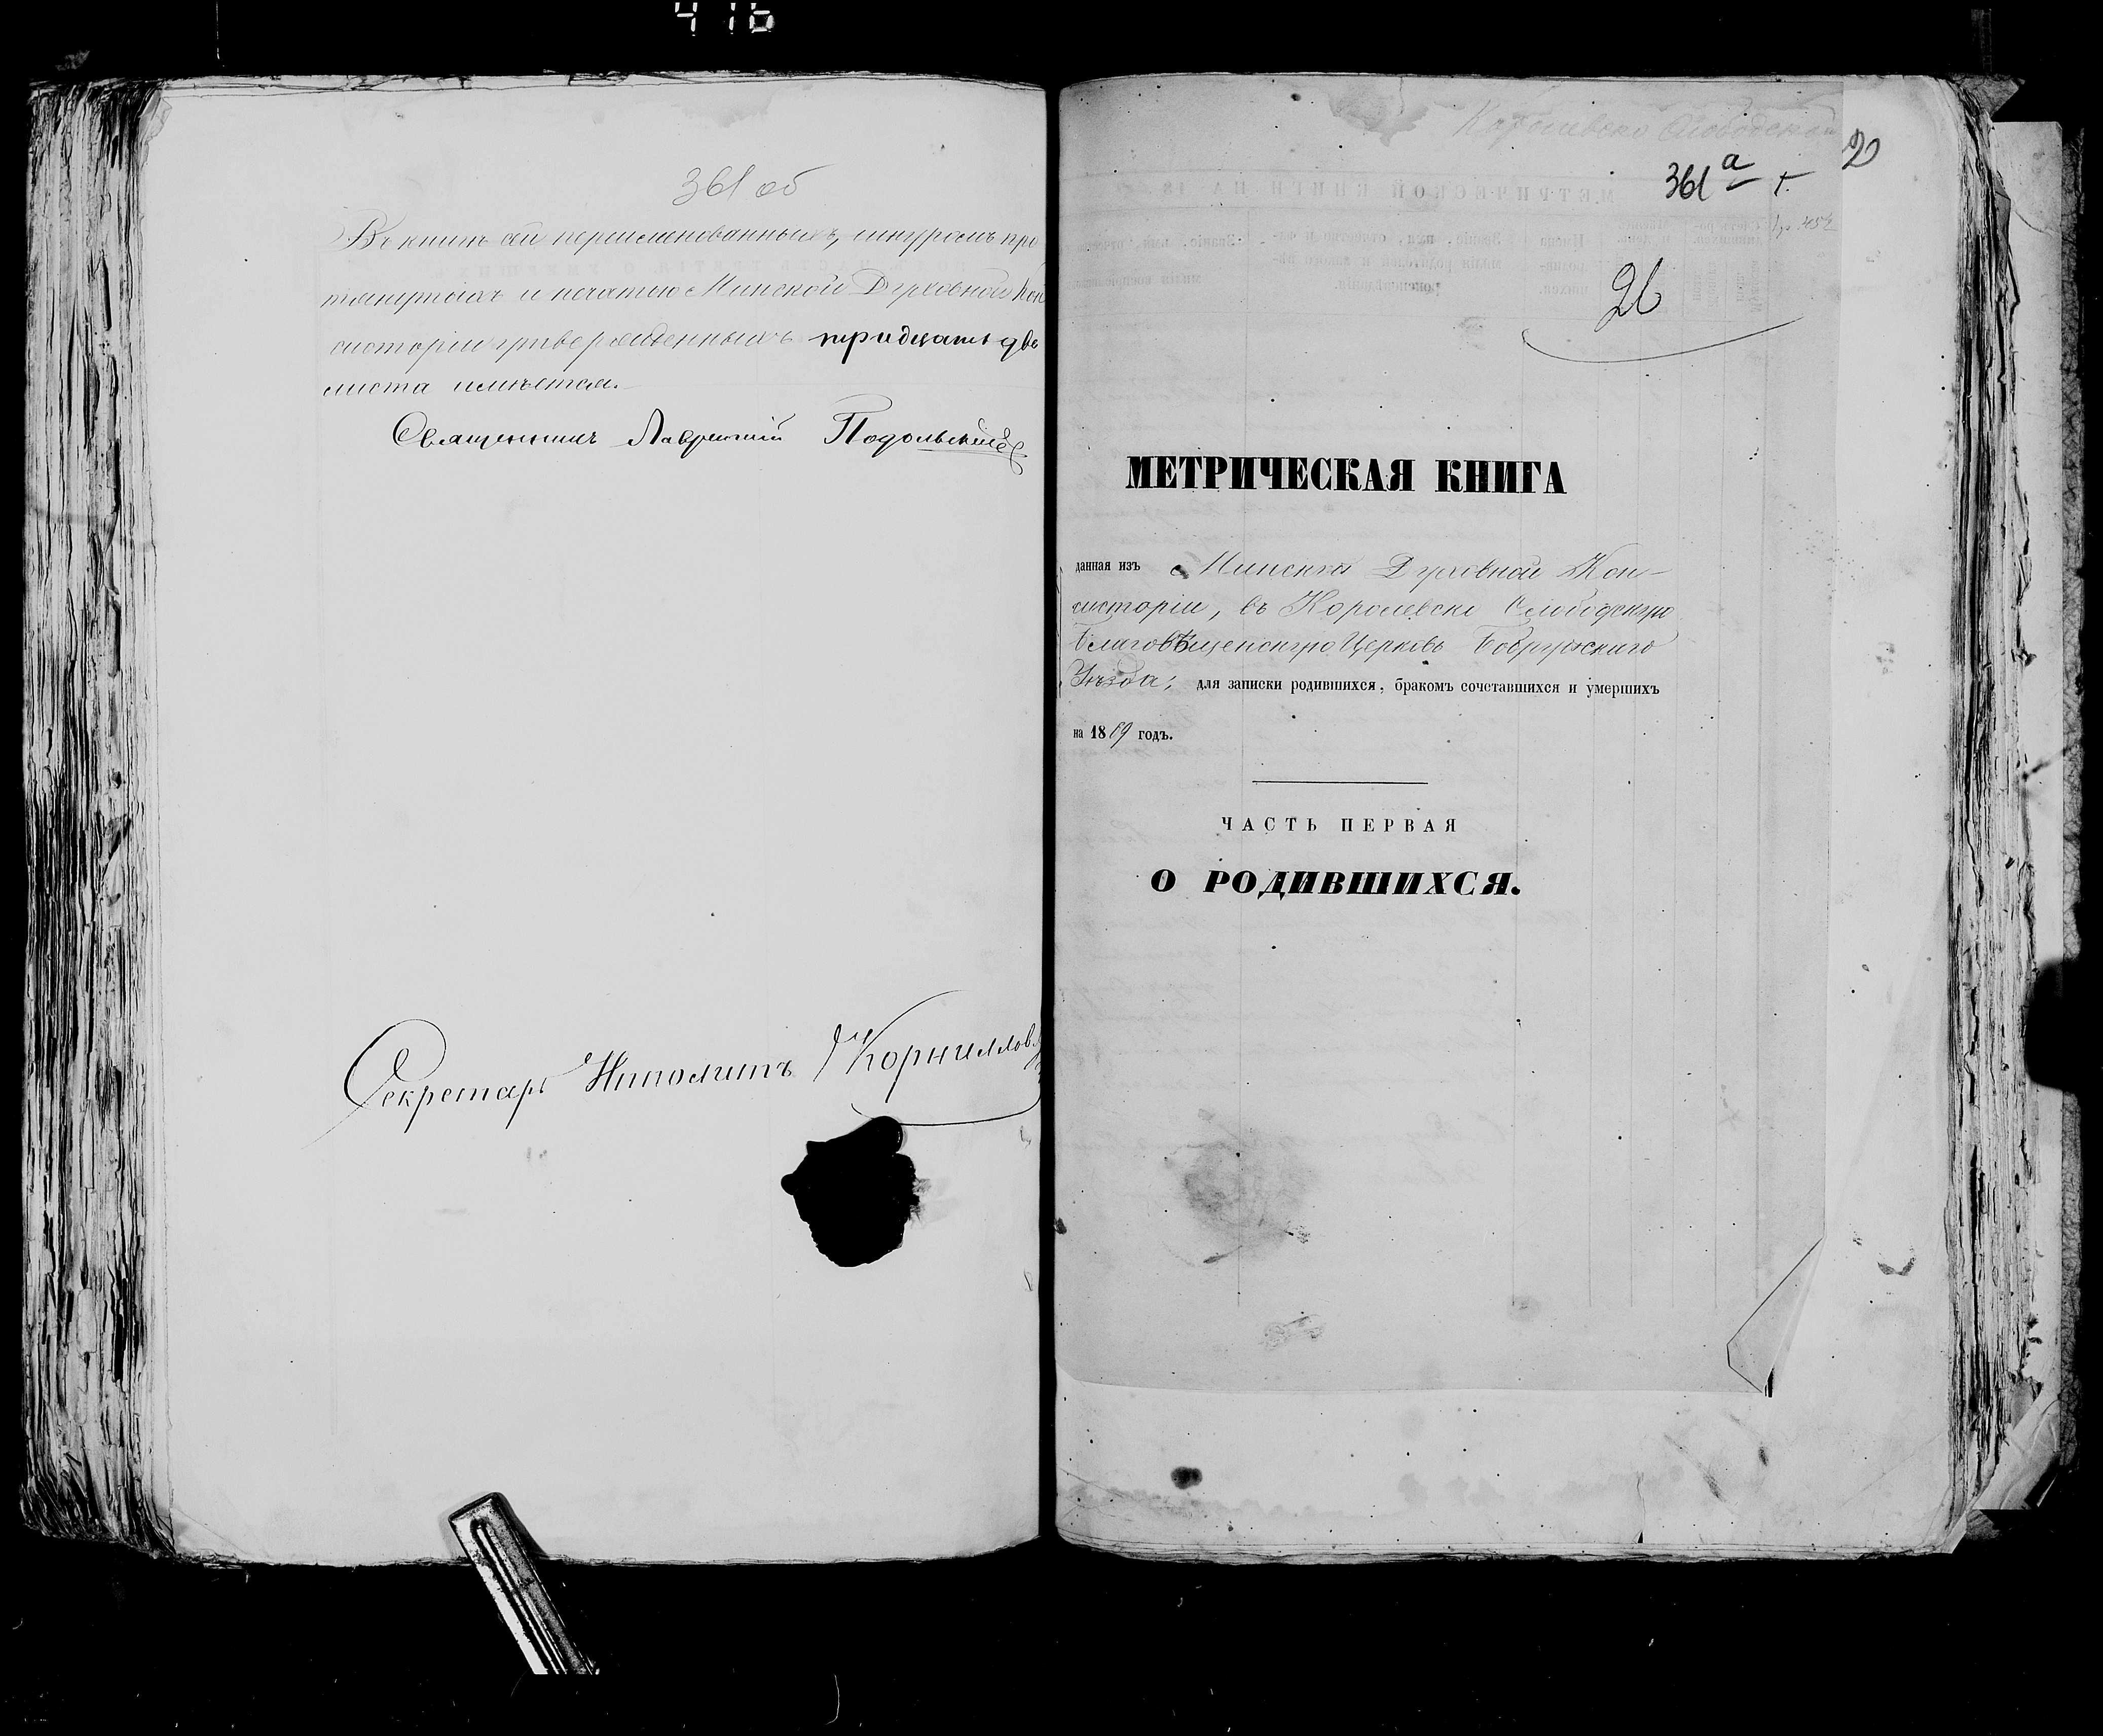 416
361 об
Въ книгѣ сей перенумерованныхъ, шнуромъ про
тянутыхъ и печатью Минской Духовной Кон
систоріи утвержденныхъ тридцать два
листа имѣется.
Священникъ Лаврентій Подольскій
Секретарь Ипполитъ Корнилов
Королевско Слободской
20
361 а
26
МЕТРИЧЕСКАЯ КНИГА
данная изъ Минской Духовной Кон-
систоріи, въ Королевско Слободскую
Благовѣщенскую Церковь Бобруйскаго
Уѣзда; для записки родившихся, бракомъ сочетавшихся и умершихъ
на 1869 годъ.
ЧАСТЬ ПЕРВАЯ
О РОДИВШИХСЯ.